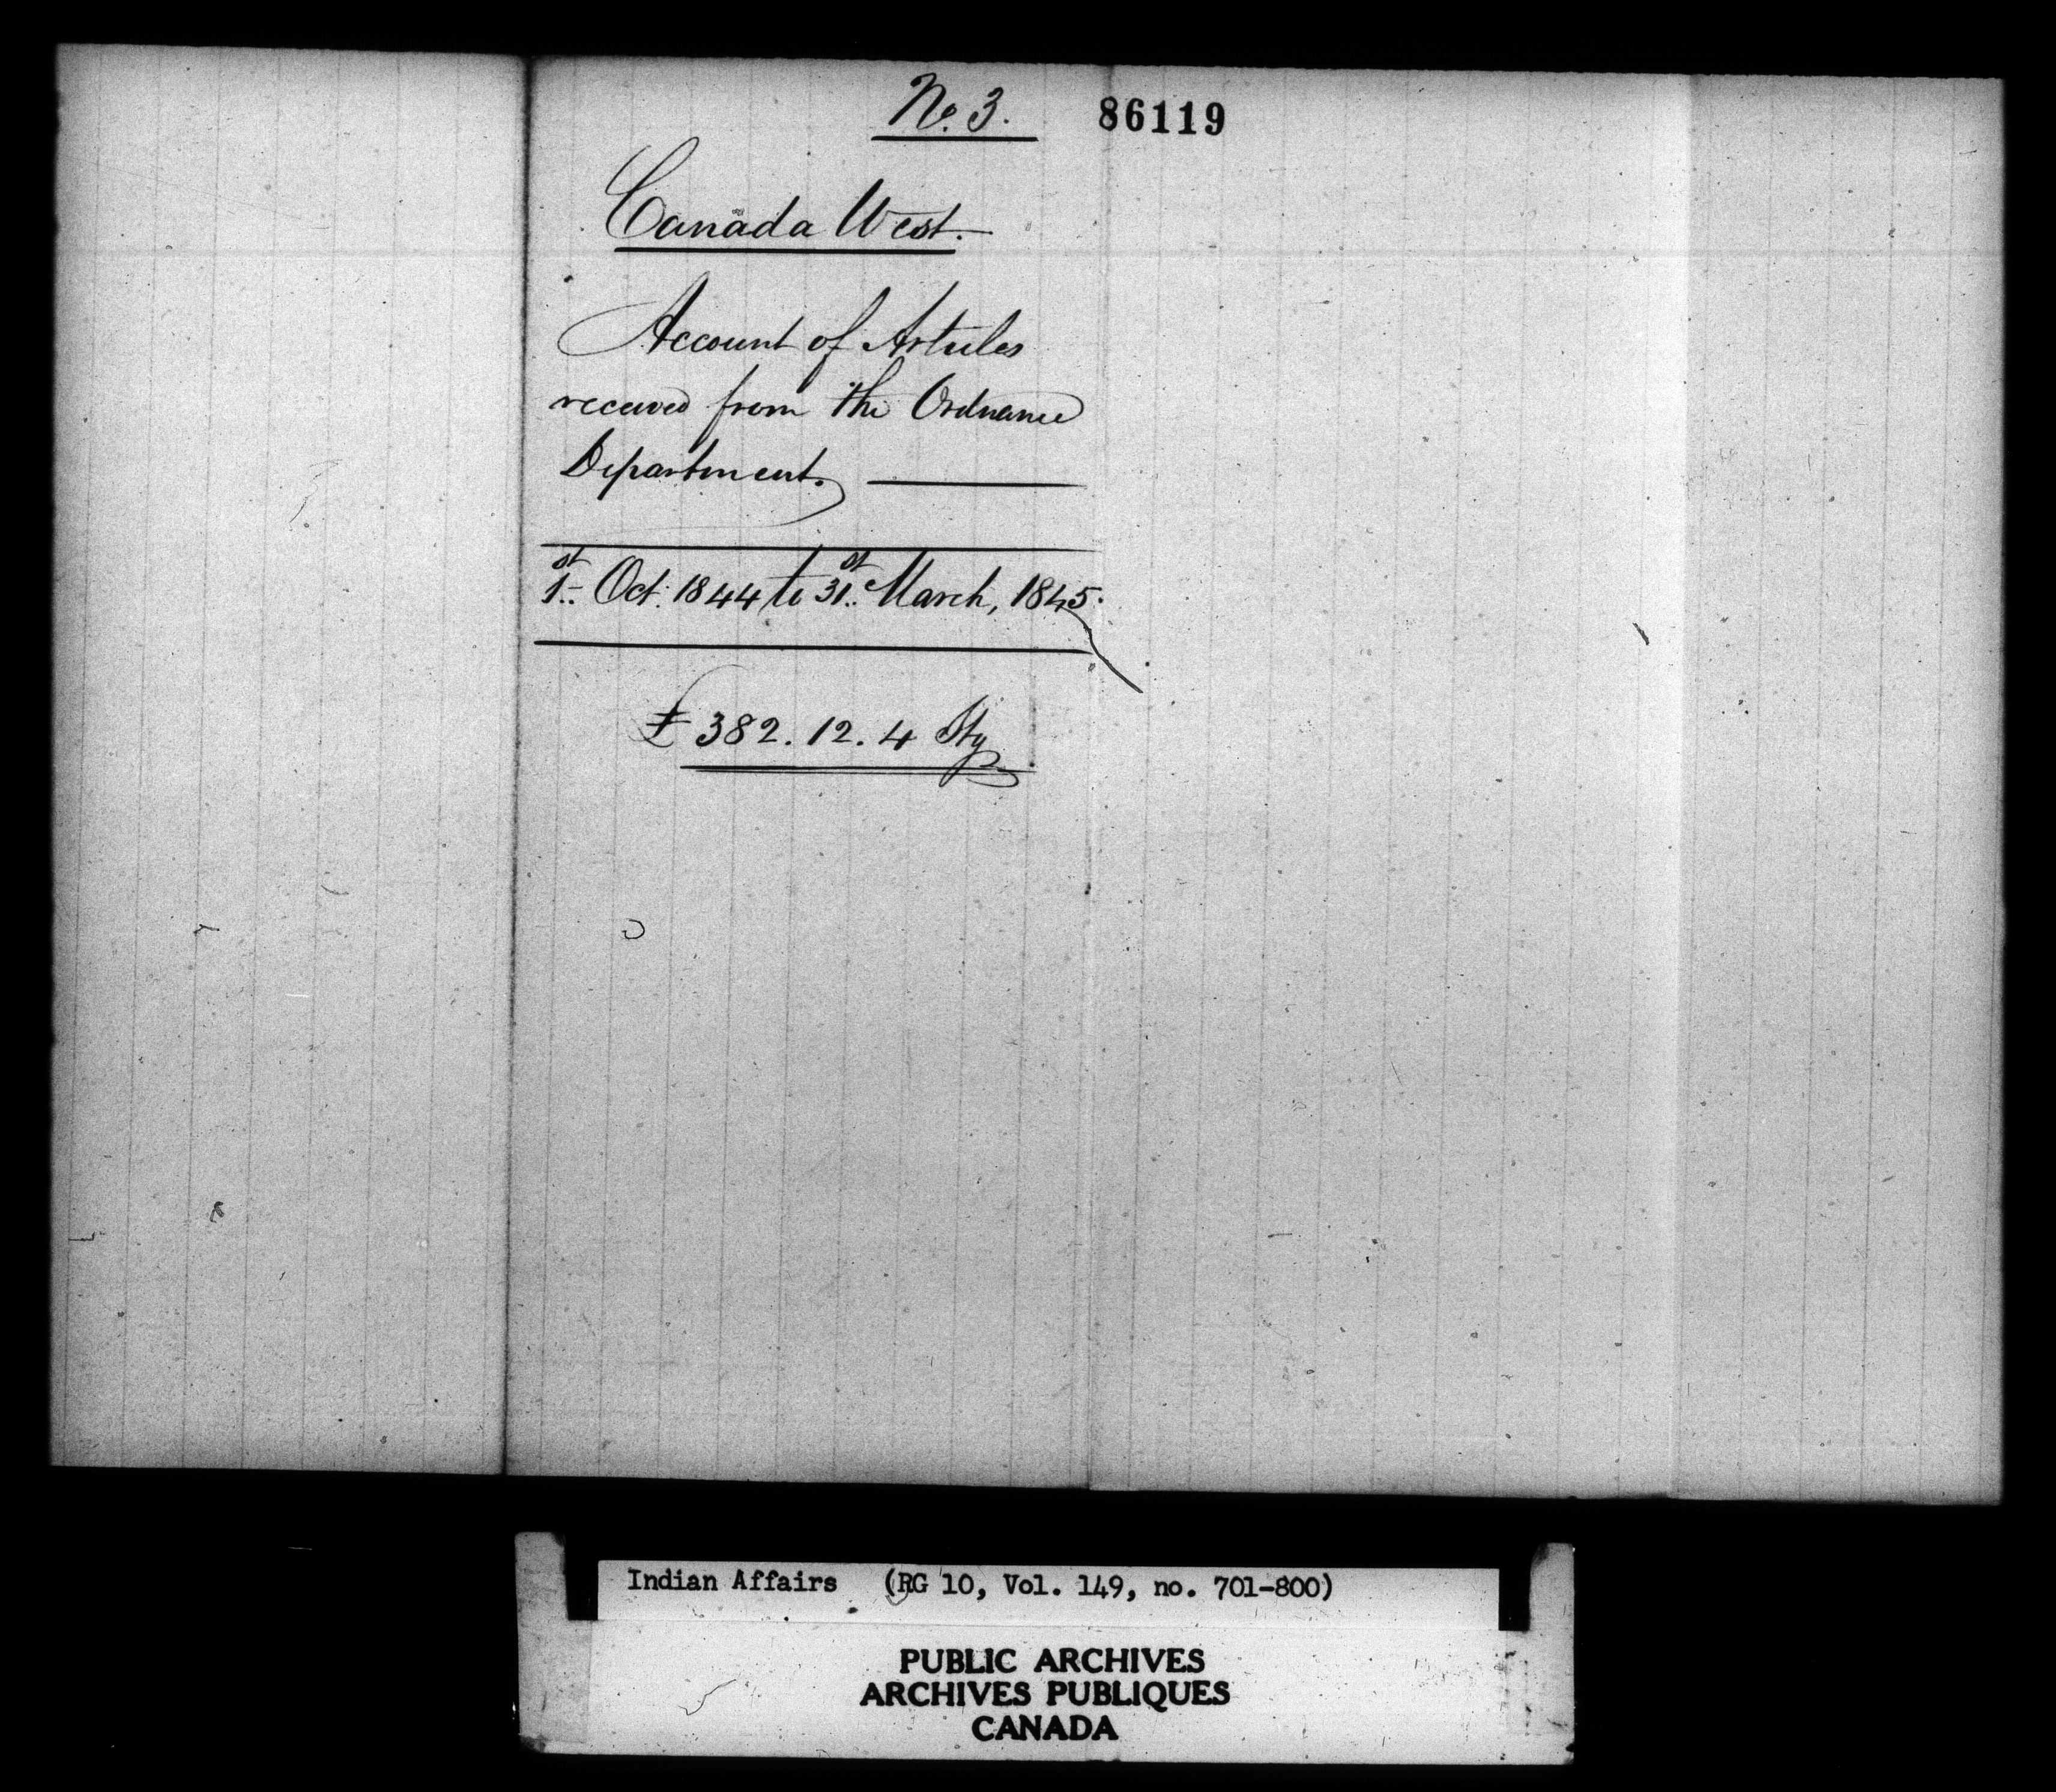 No. 3.
86119
Canada West.
Account of Articles
received from the Ordnance
Department.
1st Oct: 1844 to 31st March, 1845.
£ 382. 12. 4 Stg
Indian Affairs (RG 10, Vol. 149, no. 701-800)
PUBLIC ARCHIVES
ARCHIVES PUBLIQUES
CANADA